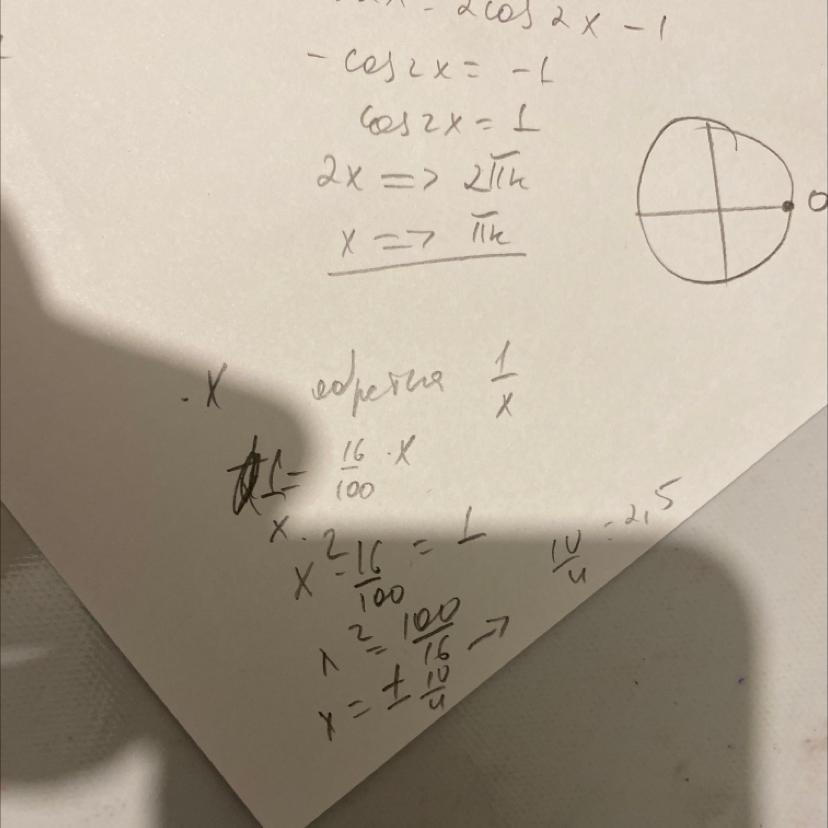 2cos2x - 1
- cos2x = -1
cos2x = 1
2x => 2πk
x => πk
0
.x обратная 1/x
1 = 16/100 · x
x
x² · 16/100 = 1
10/4 = 2,5
x² = 100/16 →
x = ± 10/4